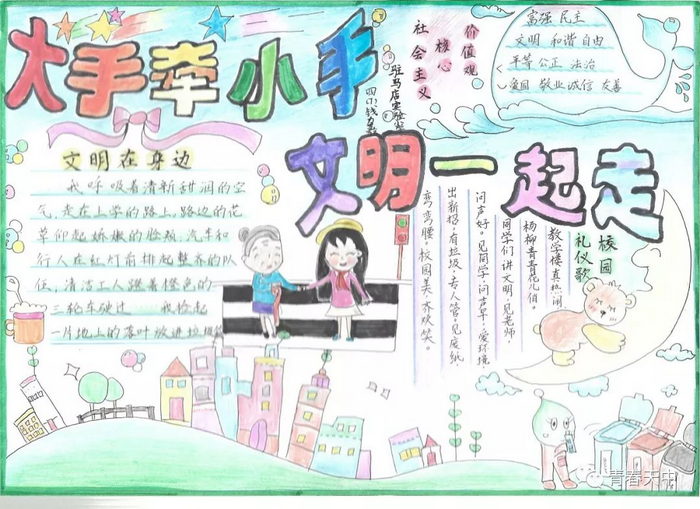 大手牵小手
文明一起走
社会主义
核心
价值观
富强 民主
文明 和谐 自由
平等 公正 法治
爱国 敬业 诚信 友善
文明在身边
我呼吸着清新甜润的空
气,走在上学的路上。路边的花
草仰起娇嫩的脸颊,汽车和
行人在红灯前排起整齐的队
伍,清洁工人蹬着橙色的
三轮车驶过 我捡起
一片地上的落叶放进垃圾
校园
礼仪歌
教学楼真热闹
杨柳青青花儿俏。
同学们讲文明,见老师
问声好。见同学,问声早,爱环境
出新招,有垃圾,专人管。见废纸
弯弯腰。校园美,齐欢笑。
驻马店实验
青春天中